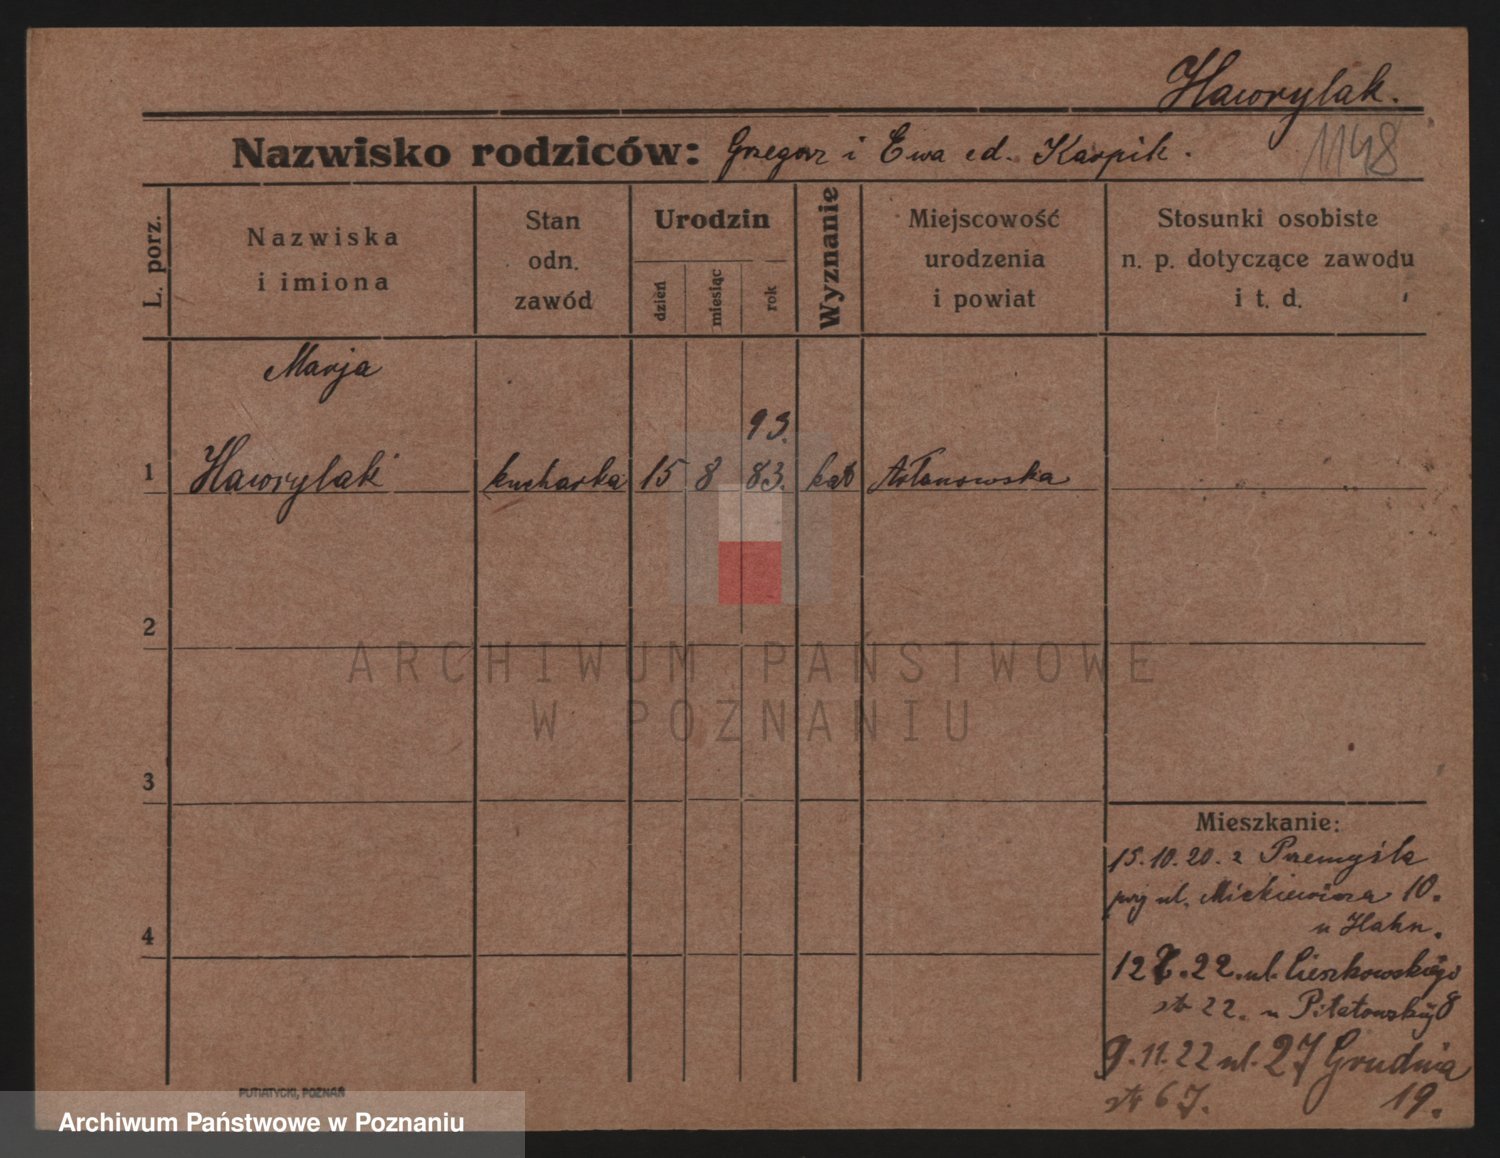 Hawrylak.
Nazwisko rodziców: Grzegorz i Ewa Karpik.
1148
L. porz.
Nazwiska
i imiona
Stan
odn.
zawód
Urodzin
dzień
miesiąc
rok
Wyznanie
Miejscowość
urodzenia
i powiat
Stosunki osobiste
n. p. dotyczące zawodu
i t. d.
Marja
93.
1 Hawrylak kucharka 15 8 83. kat
2
ARCHIWUM PAŃSTWOWE
W POZNANIU
3
Mieszkanie:
15.10.20. z Przemyśla
ul. Mickiewicza 10.
u Hahn.
4
22. ul. Cieszkowskiego
str 22. u 8
9.11.22 ul. 27 Grudnia
str 67. 19.
PUTIATYCKI, POZNAŃ
Archiwum Państwowe w Poznaniu